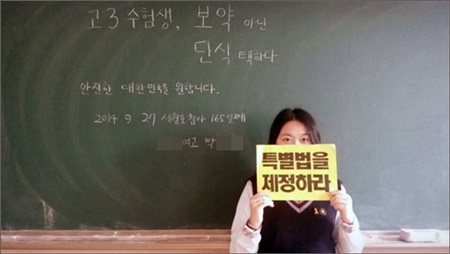 고3 수험생, 보약 아닌
단식 택하다
안전한 대한민국을 원합니다.
2014 9 27 세월호 참사 165일째
여고 박
특별법을
제정하라